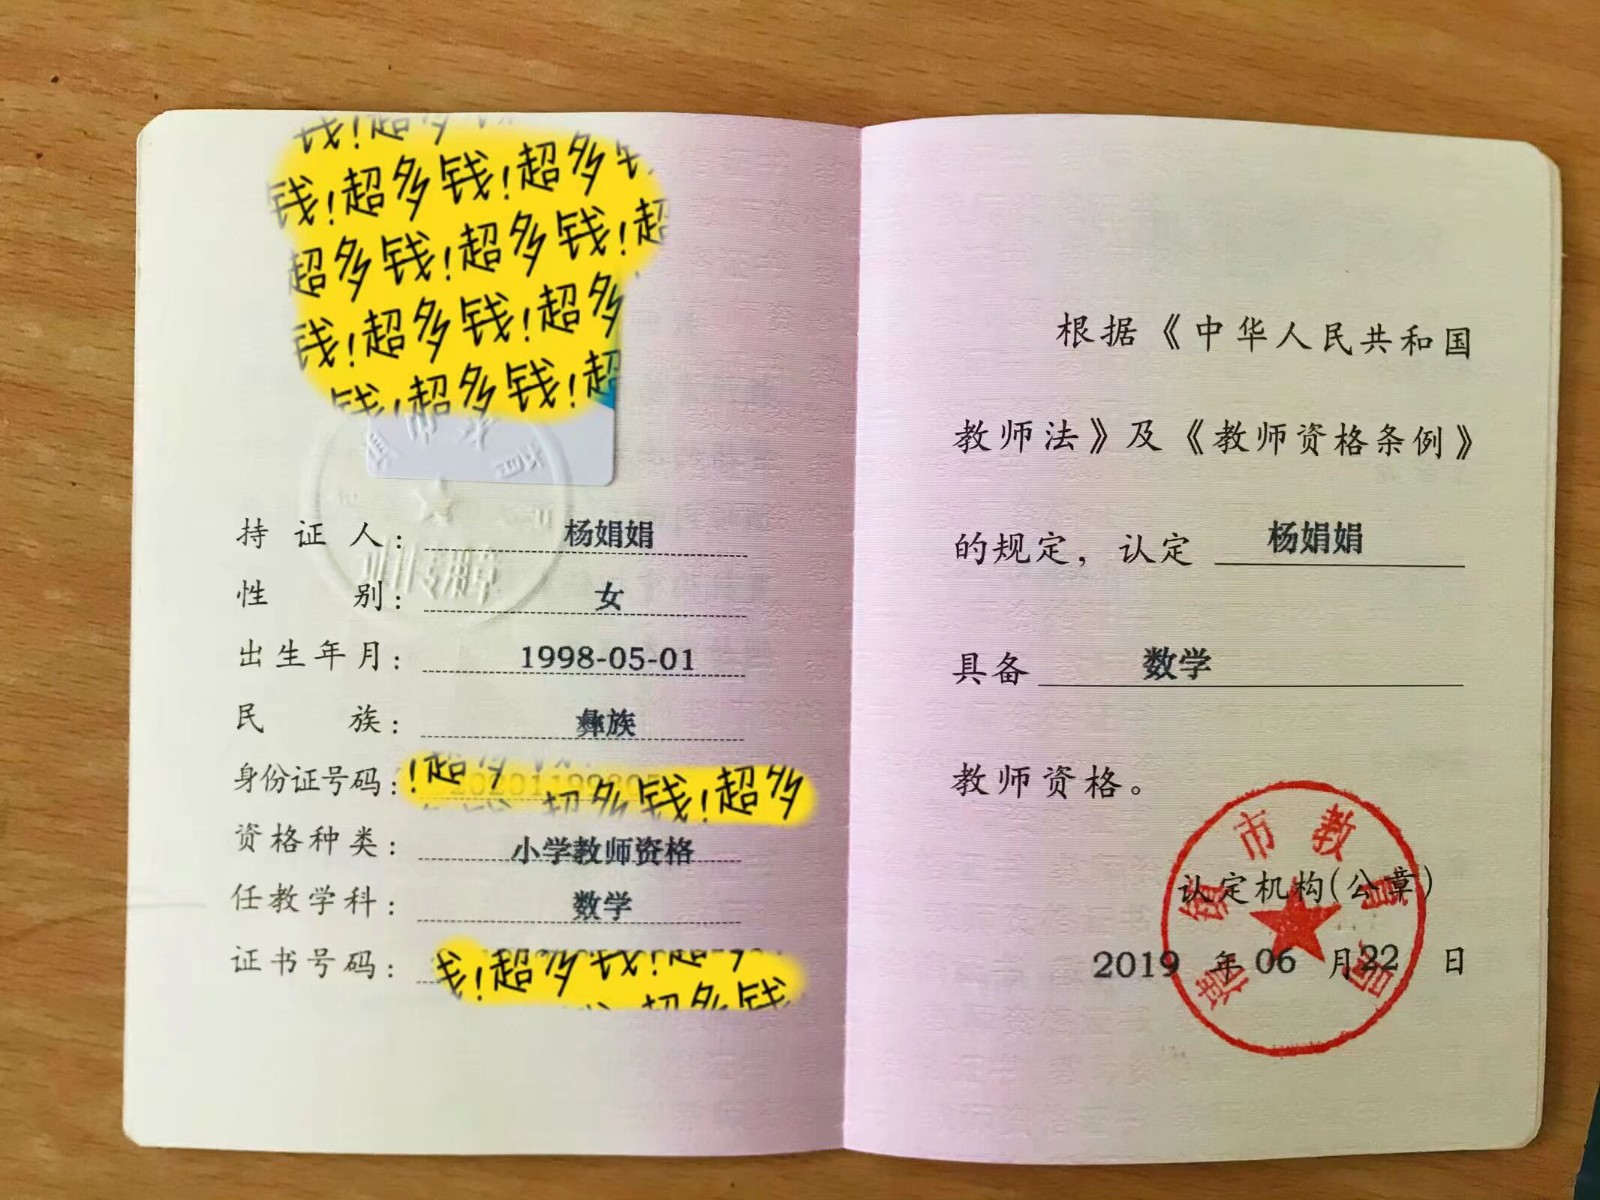 钱!超多钱
钱!超多钱!超多钱
超多钱!超多钱!超
钱!超多钱!超多
钱!超多钱!超
持证人: 杨娟娟
性别: 女
出生年月: 1998-05-01
民族: 彝族
身份证号码: !超多
超多钱!超多
资格种类: 小学教师资格
任教学科: 数学
证书号码: 钱!超多钱!超多
超多钱
根据《中华人民共和国
教师法》及《教师资格条例》
的规定，认定 杨娟娟
具备 数学
教师资格。
市教育局
认定机构(公章)
2019 年 06 月 22 日